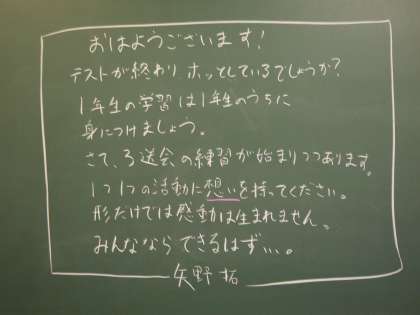 おはようございます!
テストが終わり ホッとしているでしょうか?
1年生の学習は1年生のうちに
身につけましょう。
さて、3送会の練習が始まりつつあります。
1つ1つの活動に想いを持ってください。
形だけでは感動は生まれません。
みんなならできるはず…。
矢野 拓